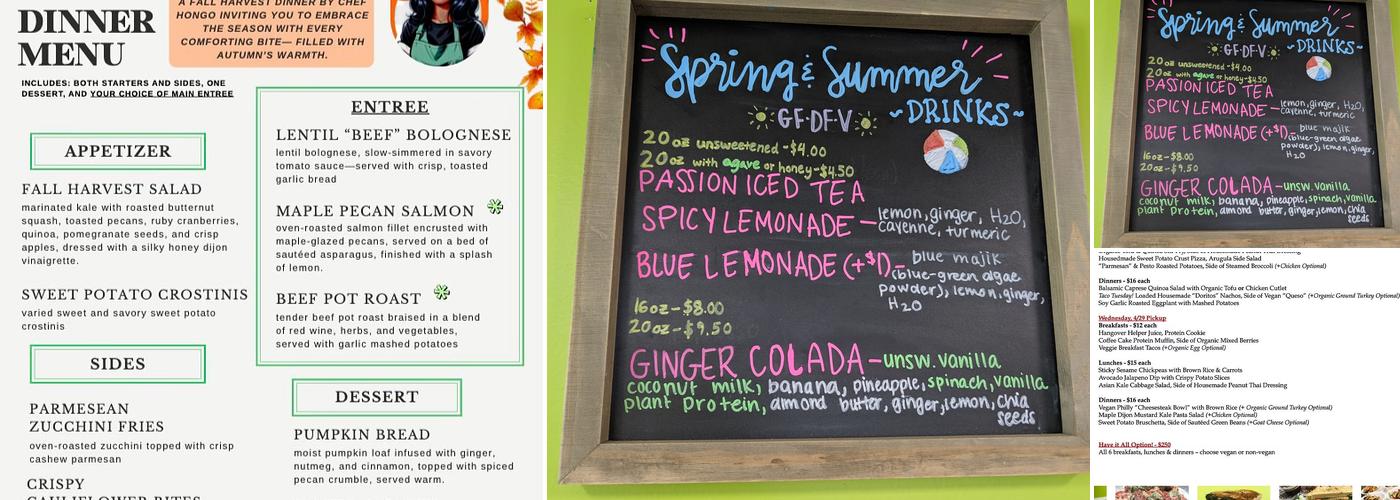 DINNER
MENU
A FALL HARVEST DINNER BY CHEF
HONGO INVITING YOU TO EMBRACE
THE SEASON WITH EVERY
COMFORTING BITE— FILLED WITH
AUTUMN'S WARMTH.
INCLUDES: BOTH STARTERS AND SIDES, ONE
DESSERT, AND YOUR CHOICE OF MAIN ENTREE
APPETIZER
FALL HARVEST SALAD
marinated kale with roasted butternut
squash, toasted pecans, ruby cranberries,
quinoa, pomegranate seeds, and crisp
apples, dressed with a silky honey dijon
vinaigrette.
SWEET POTATO CROSTINIS
varied sweet and savory sweet potato
crostinis
SIDES
PARMESEAN
ZUCCHINI FRIES
oven-roasted zucchini topped with crisp
cashew parmesan
CRISPY
CAULIFLOWER BITES
ENTREE
LENTIL “BEEF” BOLOGNESE
lentil bolognese, slow-simmered in savory
tomato sauce—served with crisp, toasted
garlic bread
MAPLE PECAN SALMON
oven-roasted salmon fillet encrusted with
maple-glazed pecans, served on a bed of
sautéed asparagus, finished with a splash
of lemon.
BEEF POT ROAST
tender beef pot roast braised in a blend
of red wine, herbs, and vegetables,
served with garlic mashed potatoes
DESSERT
PUMPKIN BREAD
moist pumpkin loaf infused with ginger,
nutmeg, and cinnamon, topped with spiced
pecan crumble, served warm.
Spring & Summer
~DRINKS~
GF·DF·V
20oz unsweetened -$4.00
20oz with agave or honey-$4.50
PASSION ICED TEA
SPICY LEMONADE - lemon, ginger, H2O,
cayenne, turmeric
BLUE LEMONADE (+$1)- blue majik
(blue-green algae
powder), lemon, ginger,
H2O
16oz-$8.00
20oz-$9.50
GINGER COLADA - unsw. vanilla
coconut milk, banana, pineapple, spinach, vanilla
plant protein, almond butter, ginger, lemon, chia
seeds
Spring & Summer
~DRINKS~
GF·DF·V
20oz unsweetened -$4.00
20oz with agave or honey-$4.50
PASSION ICED TEA
SPICY LEMONADE - lemon, ginger, H2O,
cayenne, turmeric
BLUE LEMONADE (+$1)- blue majik
(blue-green algae
powder), lemon, ginger,
H2O
16oz-$8.00
20oz-$9.50
GINGER COLADA - unsw. vanilla
coconut milk, banana, pineapple, spinach, vanilla
plant protein, almond butter, ginger, lemon, chia
seeds
Housedmade Sweet Potato Crust Pizza, Arugula Side Salad
“Parmesan” & Pesto Roasted Potatoes, Side of Steamed Broccoli (+Chicken Optional)
Dinners - $16 each
Balsamic Caprese Quinoa Salad with Organic Tofu or Chicken Cutlet
Taco Tuesday! Loaded Housemade “Doritos” Nachos, Side of Vegan “Queso” (+Organic Ground Turkey Optional)
Soy Garlic Roasted Eggplant with Mashed Potatoes
Wednesday, 4/29 Pickup
Breakfasts - $12 each
Hangover Helper Juice, Protein Cookie
Coffee Cake Protein Muffin, Side of Organic Mixed Berries
Veggie Breakfast Tacos (+Organic Egg Optional)
Lunches - $15 each
Sticky Sesame Chickpeas with Brown Rice & Carrots
Avocado Jalapeno Dip with Crispy Potato Slices
Asian Kale Cabbage Salad, Side of Housemade Peanut Thai Dressing
Dinners - $16 each
Vegan Philly “Cheesesteak Bowl” with Brown Rice (+ Organic Ground Turkey Optional)
Maple Dijon Mustard Kale Pasta Salad (+Chicken Optional)
Sweet Potato Bruschetta, Side of Sautéed Green Beans (+Goat Cheese Optional)
Have it All Option! - $250
All 6 breakfasts, lunches & dinners – choose vegan or non-vegan